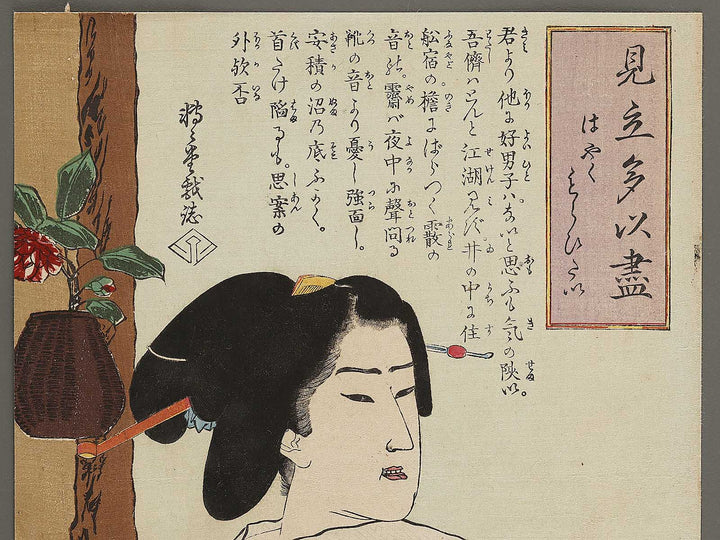 見立多以盡
はやく
きらひたい
君より他に好男子ハないと思ふも気の陜い。
吾儕ハとんと江湖見ず井の中に住
舩宿の檐にばらつく霰の
音も。霽バ夜中に聲問る
靴の音より憂し強面し。
安積の沼乃底ふかく。
首たけ陷るも。思案の
外欤否